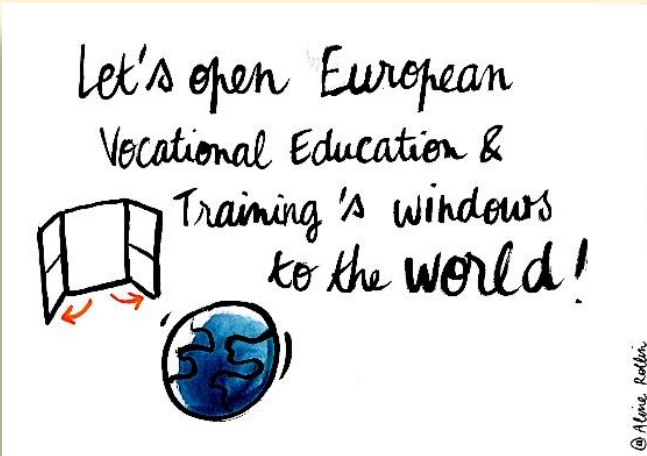 Let's open European
Vocational Education &
Training's windows
to the world!
@Aline Rollin